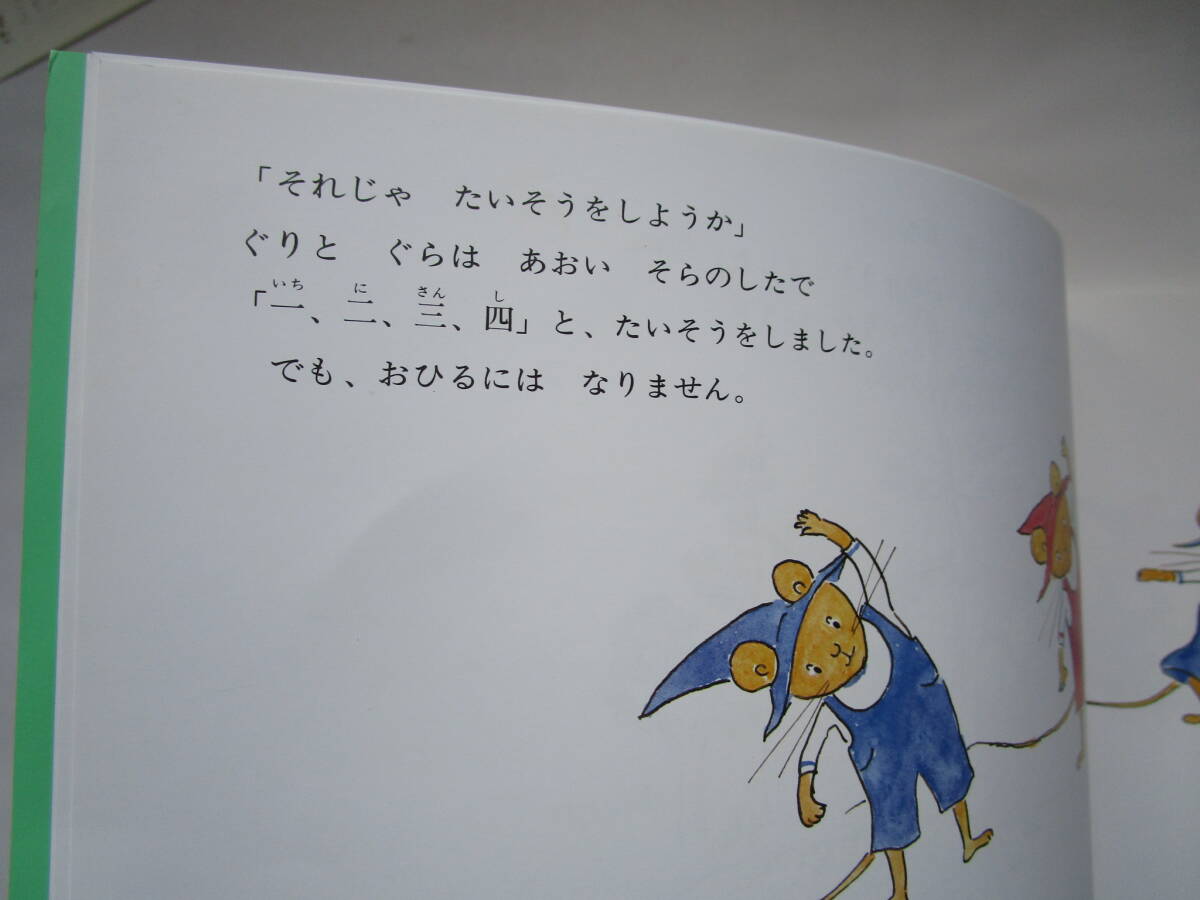 「それじゃ　たいそうをしようか」
ぐりと　ぐらは　あおい　そらのしたで
「一、二、三、四」と、たいそうをしました。
でも、おひるには　なりません。